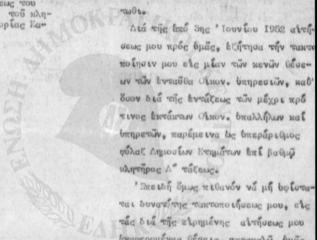 σεως του
τοῦ κλη-
ορίας Εα-
τωθι.
Διά τῆς ἀπό 3ης Ἰουνίου 1952 αἰτή-
σεως μου πρός ὑμᾶς, ἐζήτησα τήν τακτο-
ποίησιν μου εἰς μίαν τῶν κενῶν θέσε-
ων τῶν ἐνταῦθα Οἰκον. ὑπηρεσιῶν, καθ'
ὅσον διά τῆς ἐντάξεως τῶν μέχρι πρό
τινος ἐκτάκτων Οἰκον. ὑπαλλήλων καί
ὑπηρετῶν, παρέμεινα ὡς ὑπεράριθμος
φύλαξ Δημοσίων Κτημάτων ἐπί βαθμῷ
κλητῆρος Α' τάξεως.
Ἐπειδή ὅμως πιθανόν νά μή ὑφίστα-
ται δυνατότης τακτοποιήσεως μου, εἰς
τάς διά τῆς εἰρημένης αἰτήσεως μου